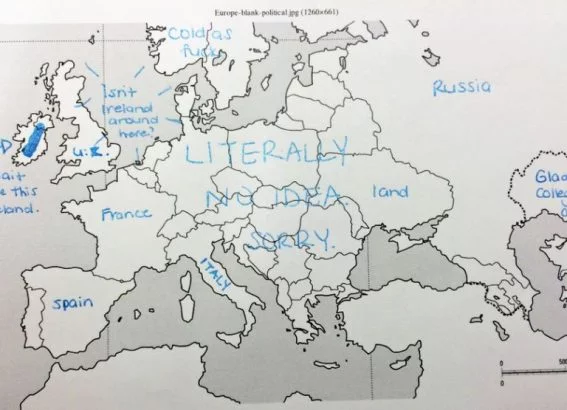 Europe-blank-political.jpg (1260×661)
Cold as
fuck
Isn't
Ireland
around
here?
Russia
D
U.K.
LITERALLY
this
land.
NO IDEA
land
France
SORRY.
ITALY
Spain
500
0
0